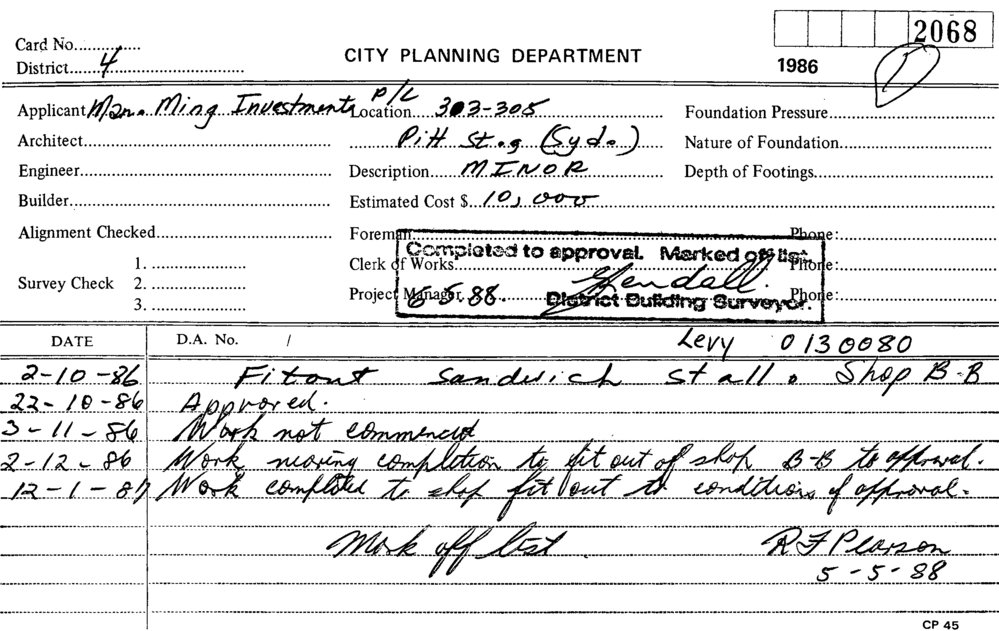 2068
Card No.
CITY PLANNING DEPARTMENT
District 4
1986
Applicant Man. Ming Investments P/L Location 303-305 Foundation Pressure
Architect Pitt St. (Syd.) Nature of Foundation
Engineer Description MINOR Depth of Footings
Builder Estimated Cost $ 10,000
Alignment Checked Foreman Phone:
Completed to approval. Marked off list.
Clerk of Works Phone:
Survey Check 1.
2.
3.
Project Manager Phone:
6 5. 88.
District Building Surveyor.
DATE D.A. No. / Levy 0130080
2-10-86 Fitout sandwich stall. Shop B-B
22-10-86 Approved.
3-11-86 Work not commenced
2-12-86 Work nearing completion to fit out of shop B-B to approval.
12-1-87 Work completed to shop fit out to conditions of approval.
Mark off list. R F Pearson
5-5-88
CP 45